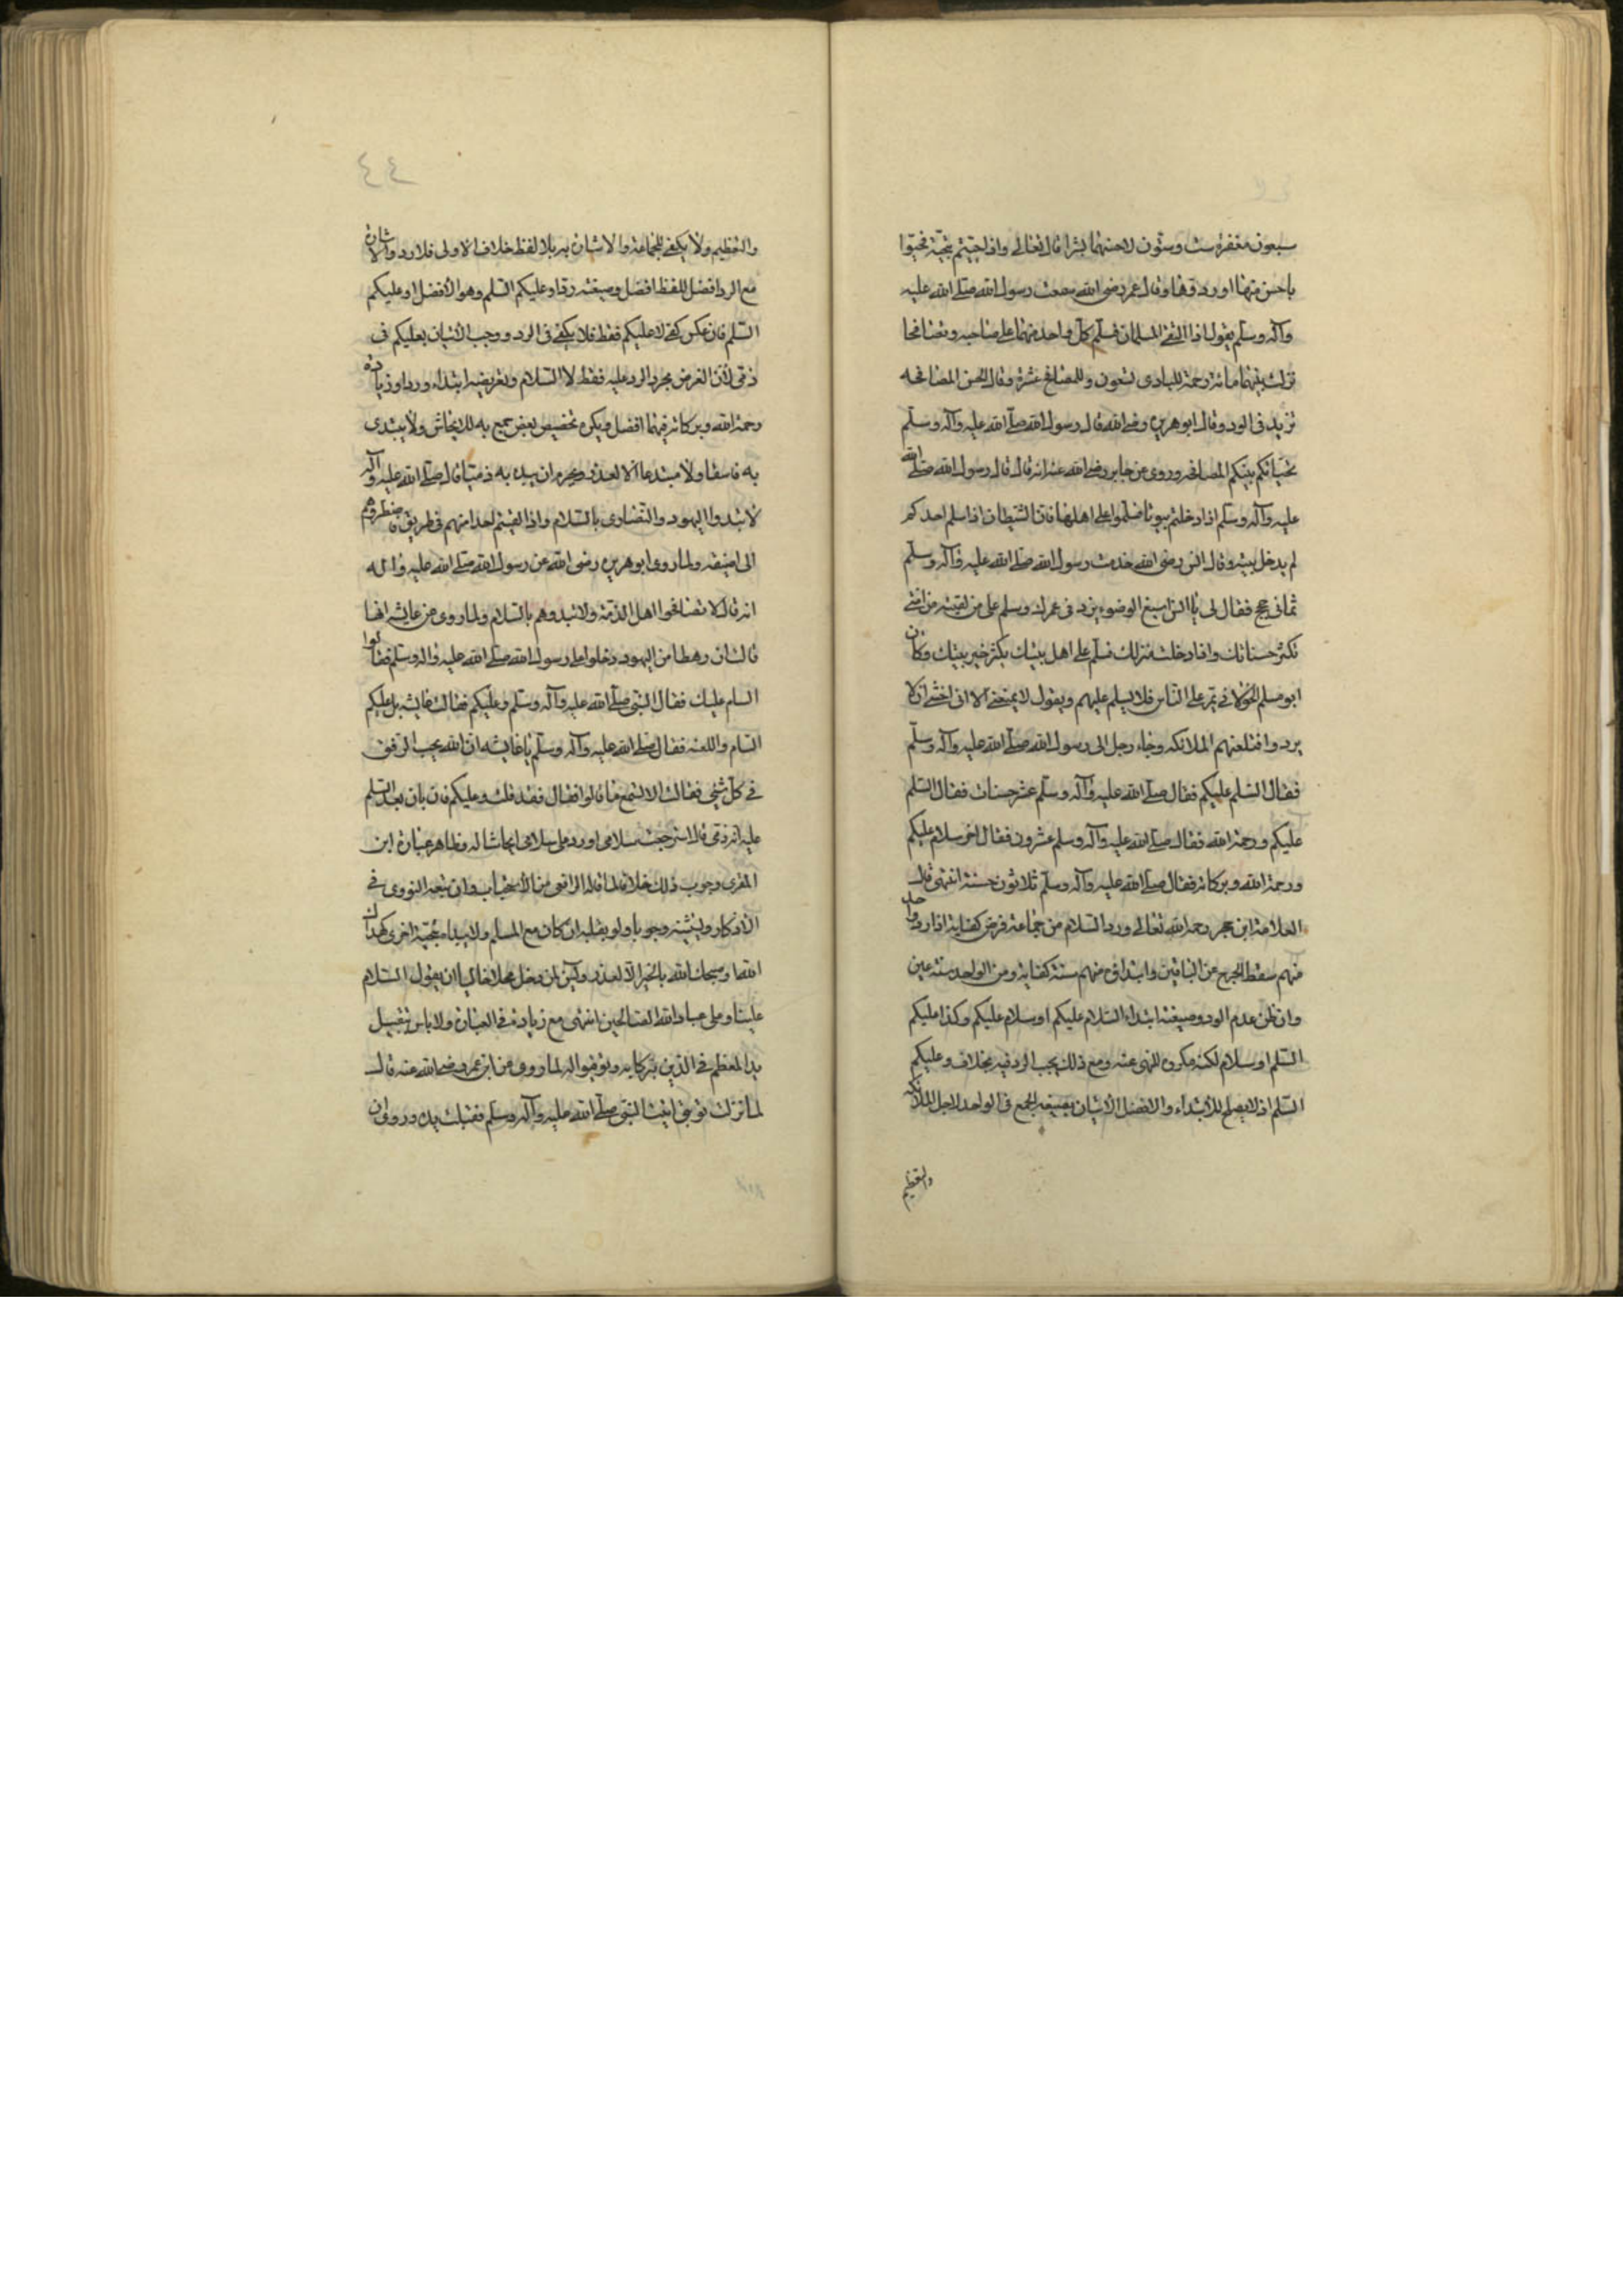 سبعون مغفرة ست وستون لاحسنهما بشرا قال تعالى واذا حييتم بتحية فحيوا
باحسن منها او ردوها وقال عمر رضى الله سمعت رسول الله صلى الله عليه
وآله وسلم يقول اذا التقى المسلمان فسلم كل واحد منهما على صاحبه وتصافحا
نزلت بينهما مائة رحمة للبادى تسعون وللمصافح عشرة وقال الحسن المصافحه
تزيد فى الود وقال ابو هريرة رضى الله قال رسول الله صلى الله عليه وآله وسلم
تحياتكم بينكم المصافحه وروى عن جابر رضى الله عنه انه قال قال رسول الله صلى الله
عليه وآله وسلم اذا دخلتم بيوتا فسلموا على اهلها فان الشيطان اذا سلم احدكم
لم يدخل بيته وقال انس رضى الله خدمت رسول الله صلى الله عليه وآله وسلم
ثمانى حجج فقال لى يا انس اسبغ الوضوء يزد فى عمرك وسلم على من لقيته من امتى
تكثر حسناتك واذا دخلت منزلك فسلم على اهل بيتك يكثر خير بيتك وكان
ابو مسلم الخولانى يمر على الناس فلا يسلم عليهم ويقول لا يمنعنى الا انى اخشى ان لا
يردوا فتلعنهم الملائكه وجاء رجل الى رسول الله صلى الله عليه وآله وسلم
فقال السلم عليكم فقال صلى الله عليه وآله وسلم عشر حسنات فقال السلم
عليكم ورحمة الله فقال صلى الله عليه وآله وسلم عشرون فقال اخر سلام عليكم
ورحمة الله وبركاته فقال صلى الله عليه وآله وسلم ثلاثون حسنة انتهى قال
العلامة ابن حجر رحمه الله تعالى ورد السلام من جماعة فرض كفاية اذا رد واحد
منهم سقط الحرج عن الباقين وابتداؤه منهم سنة كفاية ومن الواحد سنة عين
وان ظن عدم الرد وصيغته ابتداء السلام عليكم او سلام عليكم وكذا عليكم
السلم او سلام لكنه مكروه للنهى عنه ومع ذلك يجب الرد فيه بخلاف وعليكم
السلم اذ لا يصلح للابتداء والافضل الاتيان بصيغه الجمع فى الواحد لاجل الملائكه
والتعظيم
٤٤
والتعظيم ولا يكفى للجماعة والاتيان به بلا لفظ خلاف الاولى فلا رد والاشارة
مع الرد افضل للفظ افضل وصيغته ردا وعليكم السلم وهو الافضل او عليكم
السلم فان عكس كفى لا عليكم فقط فلا يكفى فى الرد ووجب الاتيان بعليكم فى
ذمى لان الغرض مجرد الرد عليه فقط لا السلام وتعريضه ابتداء وردا وزيادة
رحمة الله وبركاته فيهما افضل ويكره تخصيص بعض جمع به للايحاش ولا يبتدى
به فاسقا ولا مبتدعا الا لعذر ويحرم ان يبدء به ذميا قال صلى الله عليه وآله
لا تبدوا اليهود والنصارى بالسلام واذا لقيتم احدا منهم فى طريق فاضطروهم
الى اضيقه ولما روى ابو هريره رضى الله عن رسول الله صلى الله عليه وآله
انه قال لا تصافحوا اهل الذمة ولا تبدوهم بالسلام ولما روى عن عائشه انها
قالت ان رهطا من اليهود دخلوا على رسول الله صلى الله عليه واله وسلم فقالوا
السام عليك فقال النبى صلى الله عليه وآله وسلم وعليكم فقالت عايشه بل عليكم
السام واللعنه فقال صلى الله عليه وآله وسلم يا عايشه ان الله يحب الرفق
فى كل شئ فقالت الا تسمع ما قالوا فقال فقد قلت وعليكم فان بان بعد السلم
عليه انه ذمى فلا استرجعت سلامى او رد على سلامى ايحاشا له وظاهر عبارة ابن
المقرى وجوب ذلك خلافا لما قاله الرافعى من الاستحباب وان تبعه النووى فى
الاذكار ويثنيه وجوبا ولو بقلبه ان كان مع المسلم ولا يبداء بتحية اخرى كهداك
الله او صبحك الله بالخير الا لعذر ويسن لمن دخل محلا خاليا ان يقول السلام
علينا وعلى عباد الله الصالحين انتهى مع زيادة فى العبارة ولا باس بتقبيل
يد المعظم فى الدين تبركا به وتوقيرا له لما روى عن ابن عمر رضى الله عنه قال
لما نزلت توبتى اتيت النبى صلى الله عليه وآله وسلم فقبلت يده وروى ان